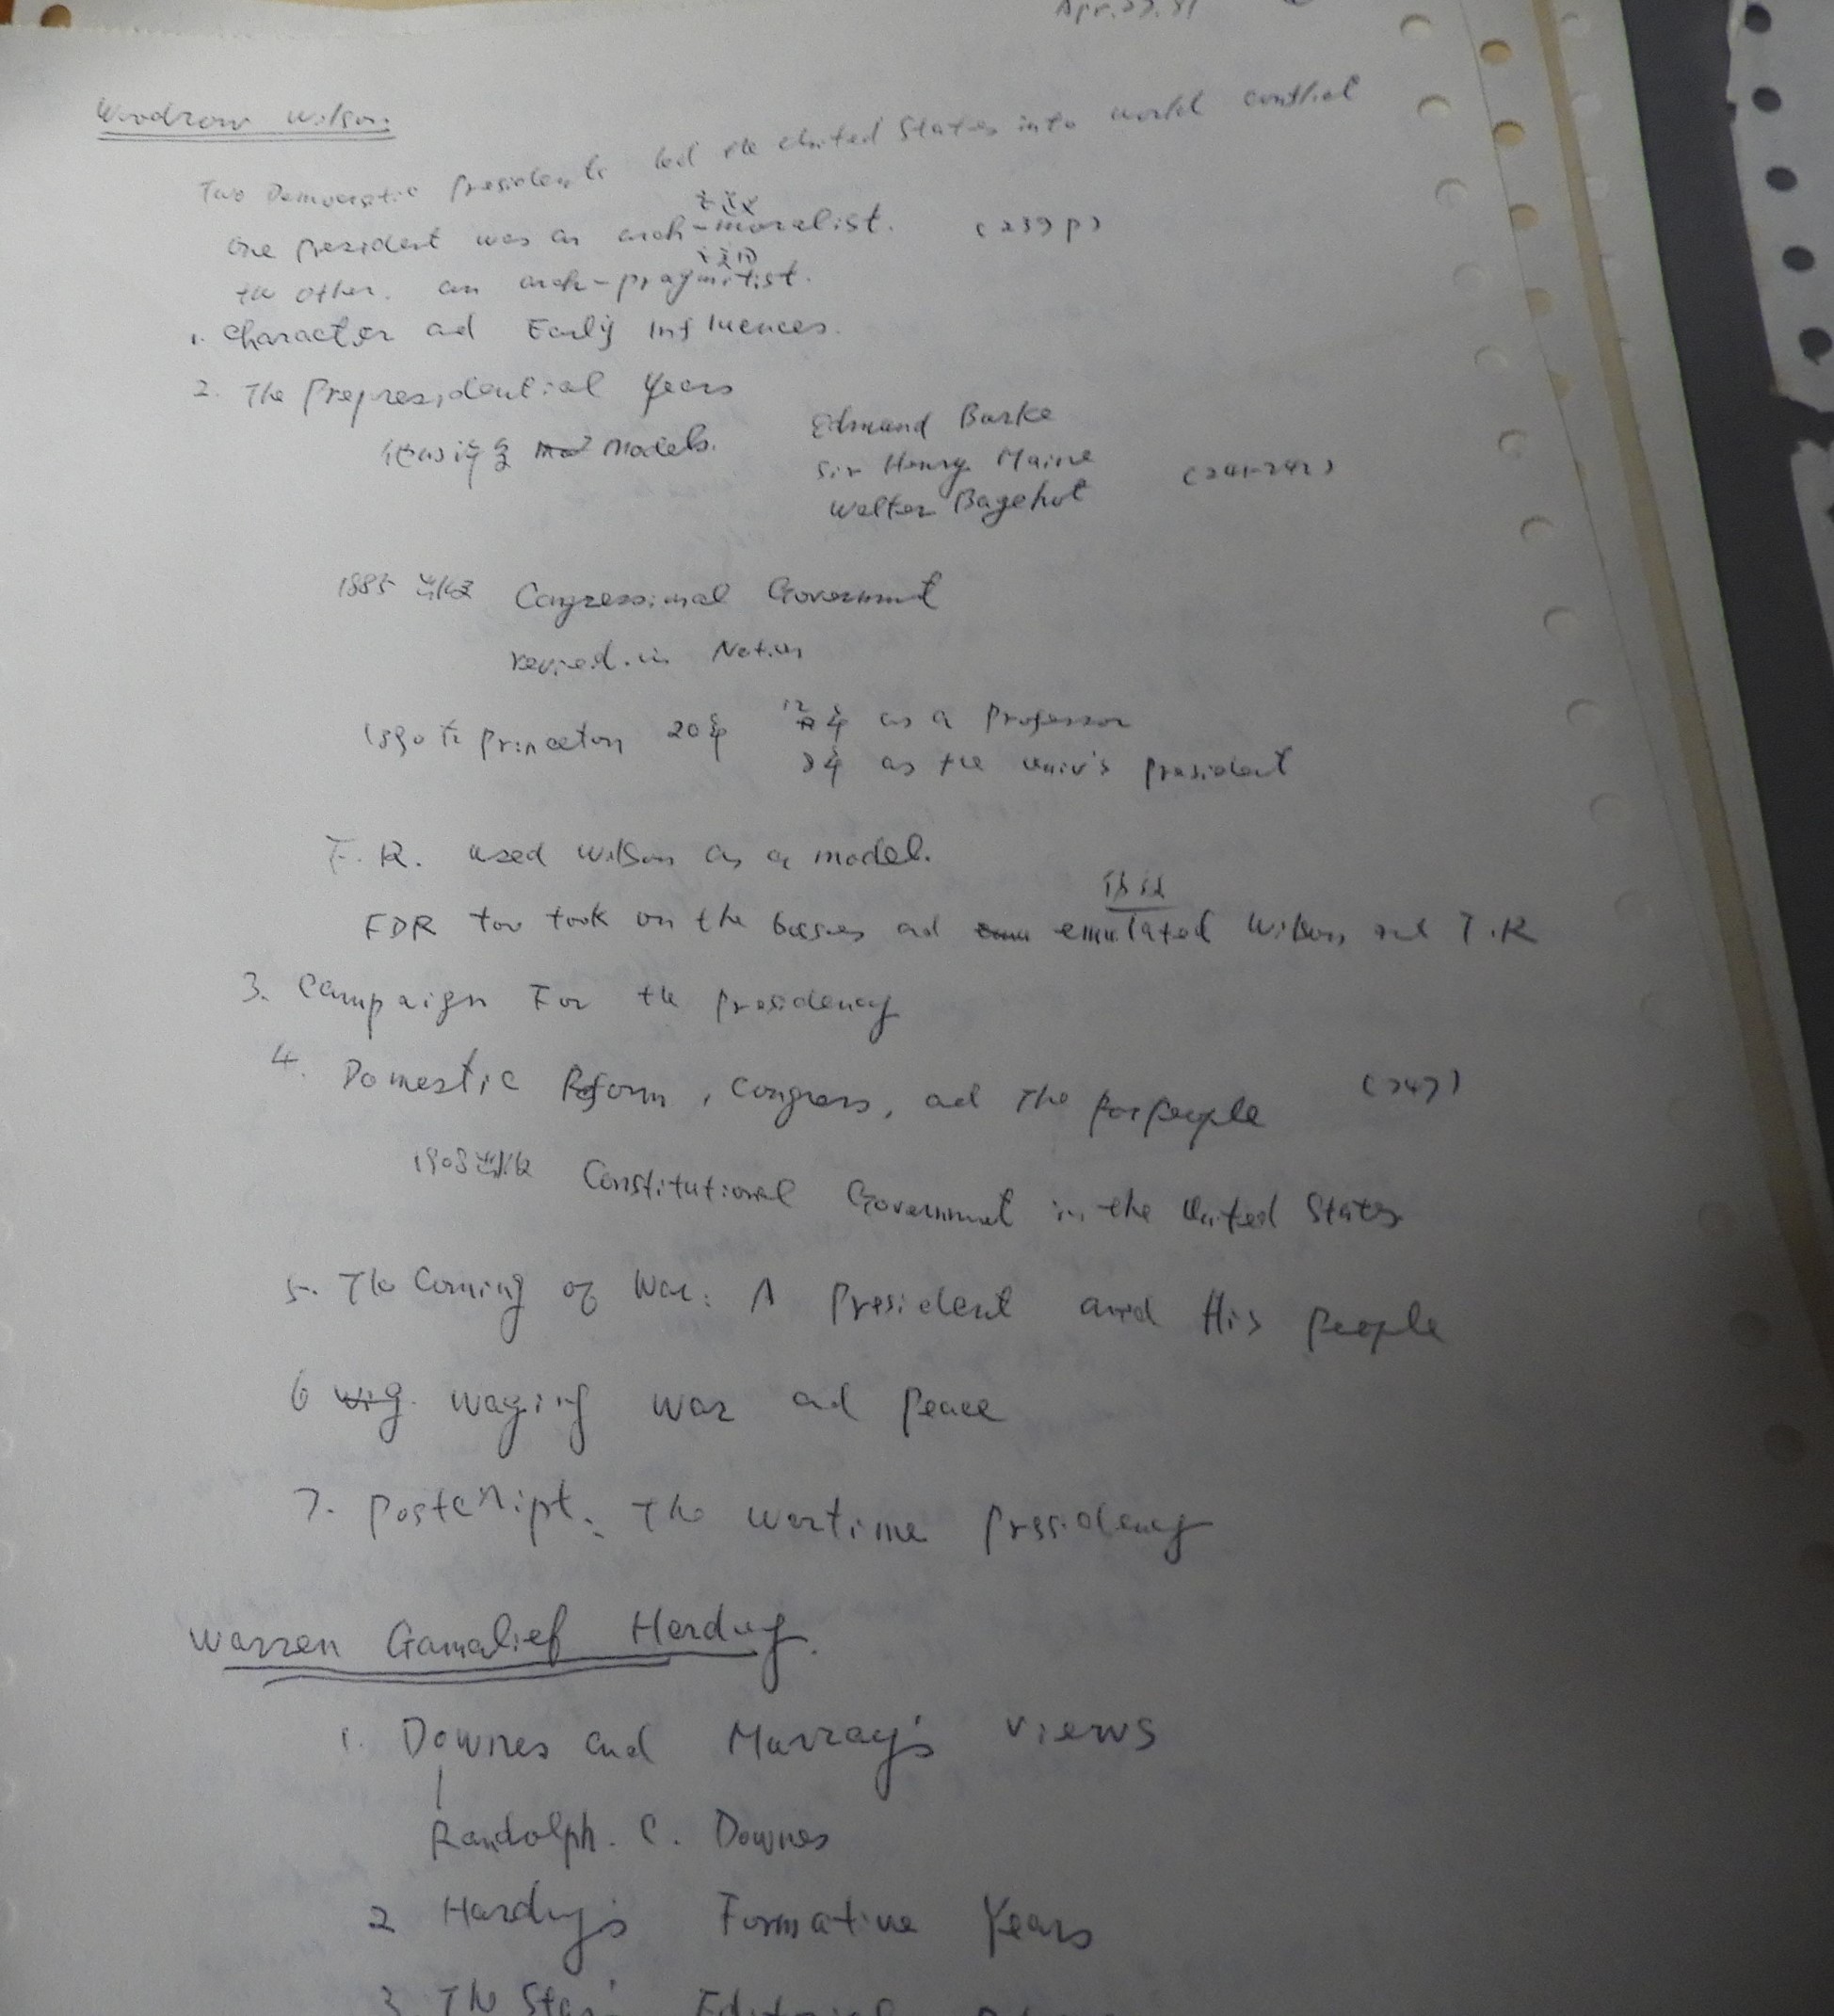 Woodrow Wilson
Two Democratic presidents led the United States into world conflict
One president was an arch-moralist. (239 p)
the other. an arch-pragmatist.
1. Character and Early Influences.
2. The Prepresidential Years
models.
Edmund Burke
Sir Henry Maine
Walter Bagehot
(241-242)
1885 出版 Congressional Government
in Nation
1890 在 Princeton 20年 12年 as a professor
8年 as the univ's president
T.R. used Wilson as a model.
FDR too took on the bosses and emulated Wilson and T.R
3. Campaign For the presidency
4. Domestic Reform, Congress, and The people (247)
1908出版 Constitutional Government in the United States
5. The Coming of War: A President and His people
6 waging war and peace
7. Postcript: The wartime presidency
Warren Gamalief Herding.
1. Downes and Murray's views
Randolph. C. Downes
2 Harding's Formative Years
3. The Star's Editorial